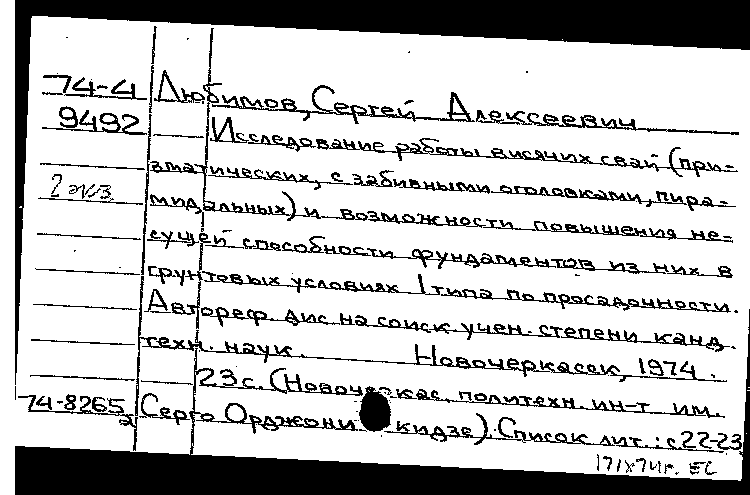 74-4 Любимов, Сергей Алексеевич
9492 Исследование работы висячих свай (при-
зматических, с забивными оголовками, пира-
2 экз. мидальных) и возможности повышения не-
сущей способности фундаментов из них в
грунтовых условиях I типа по просадочности.
Автореф. дис на соиск. учен. степени канд.
техн. наук. Новочеркасск, 1974.
23 с. (Новочеркас. политехн. ин-т им.
74-8265а Серго Орджоникидзе). Список лит.: с. 22-23
17IX74г. ЕС